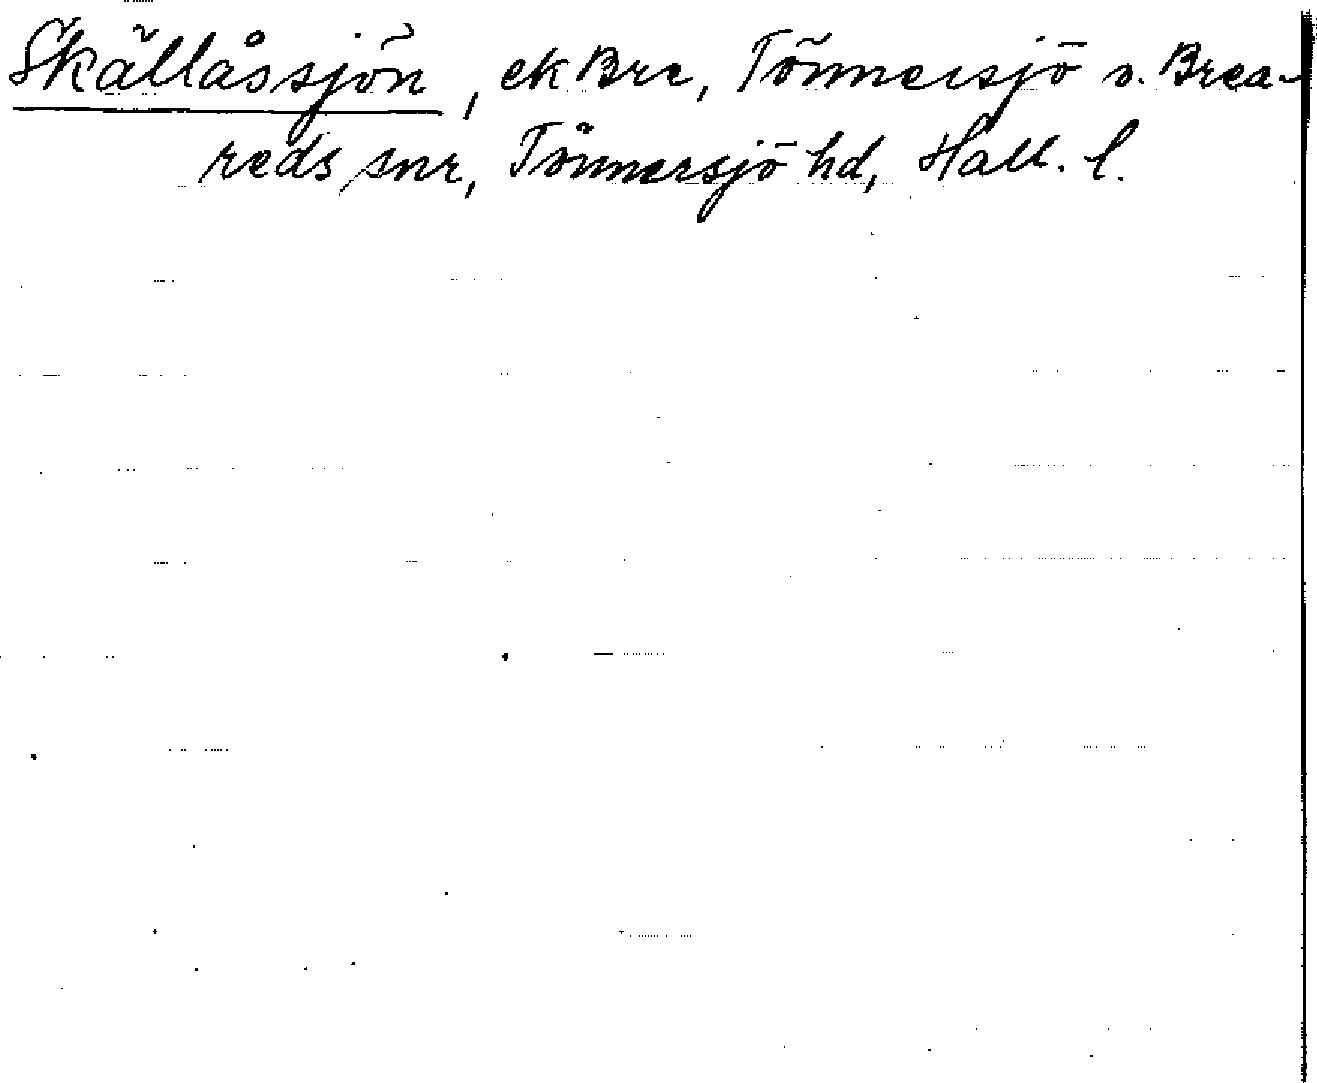 Skällåssjön, ek Bre, Tönnersjö o. Brea-
reds snr, Tönnersjö hd, Hall. l.